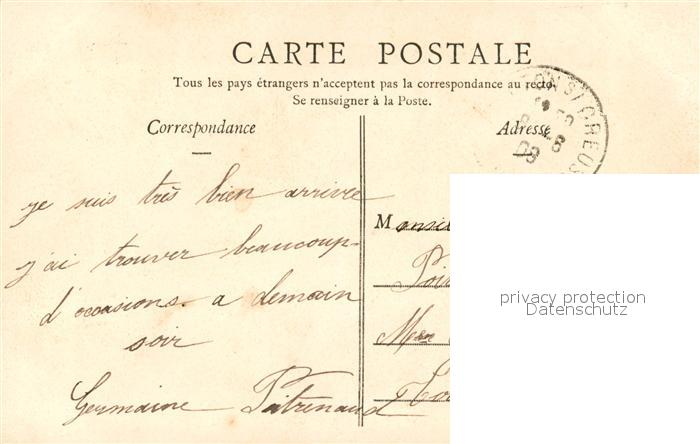 CARTE POSTALE
Tous les pays étrangers n'acceptent pas la correspondance au recto.
Se renseigner à la Poste.
Correspondance
Adresse
je suis très bien arrivée
j'ai trouver beaucoup
d'occasions. a demain
soir
Germaine
M
privacy protection
Datenschutz